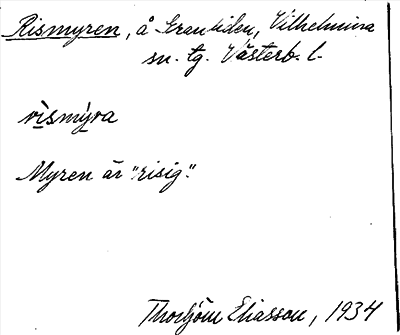 Rismyren, å Granliden, Vilhelmina
sn. tg. Västerb. l.
rismýra
Myren är "risig".
Thorbjörn Eliasson, 1934